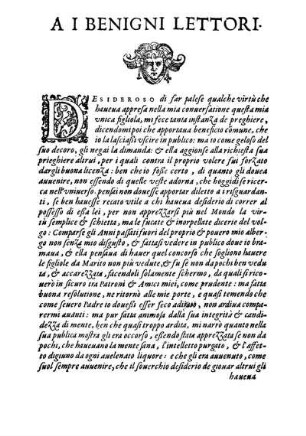 A I BENIGNI LETTORI.
DESIDEROSO di far palese qualche virtù che
haueua appresa nella mia conuersatione questa mia
vnica figliola, mi fece tanta instanza de preghiere,
dicendomi poi che apportaua beneficio cõmune, che
io la lasciassi vscire in publico: ma io come geloso del
suo decoro, gli negai la dimanda: & ella aggionse alla richiesta sua
prieghiere altrui, per i quali contra il proprio volere fui forzato
dargli buona licenza: ben che io fosse certo, di quanto gli doueua
auuenire, non essendo di quelle veste adorna, che hoggidì si ricer-
ca nell'vniuerso. pensai non douesse apportar diletto a i risguardan-
ti, se ben hauesse recato vtile a chi haueua desiderio di correr al
possesso di essa lei, per non apprezzarsi più nel Mondo la virtù
semplice & schietta, ma le fucate & morpellate dicerse dal vol-
go: Comparse gli Anni passati fuori del proprio & pouero mio albergo
non senza mio disgusto, & fattasi vedere in publico doue io bra-
maua, & ella pensaua di hauer quel concorso che sogliono hauere
le figliole da Marito non più vedute, & fù se non da pochi ben vedu
ta, & accarezzata, facendoli solamente schermo, da quali si rico-
uerò in sicuro tra Patroni & Amici miei, come prudente: ma fatta
buona resolutione, ne ritornò alle mie porte, e quasi temendo che
come seuero Padre io douessi esser seco adirato, non ardiua compa-
rermi auanti: ma pur fatta animosa dalla sua integrità & candi-
dezza di mente, hen che quasi troppo ardita, mi narrò quanto nella
sua publica mostra gli era occorso, essendo stata apprezzata se non da
pochi, che haueuano la mente sana, l'intelletto purgato, & l'affet-
to digiuno da ogni auelenato liquore: e che gli era auuenuto, come
suol sempre auuenire, che il souerchio desiderio di giouar altrui gli
haueua